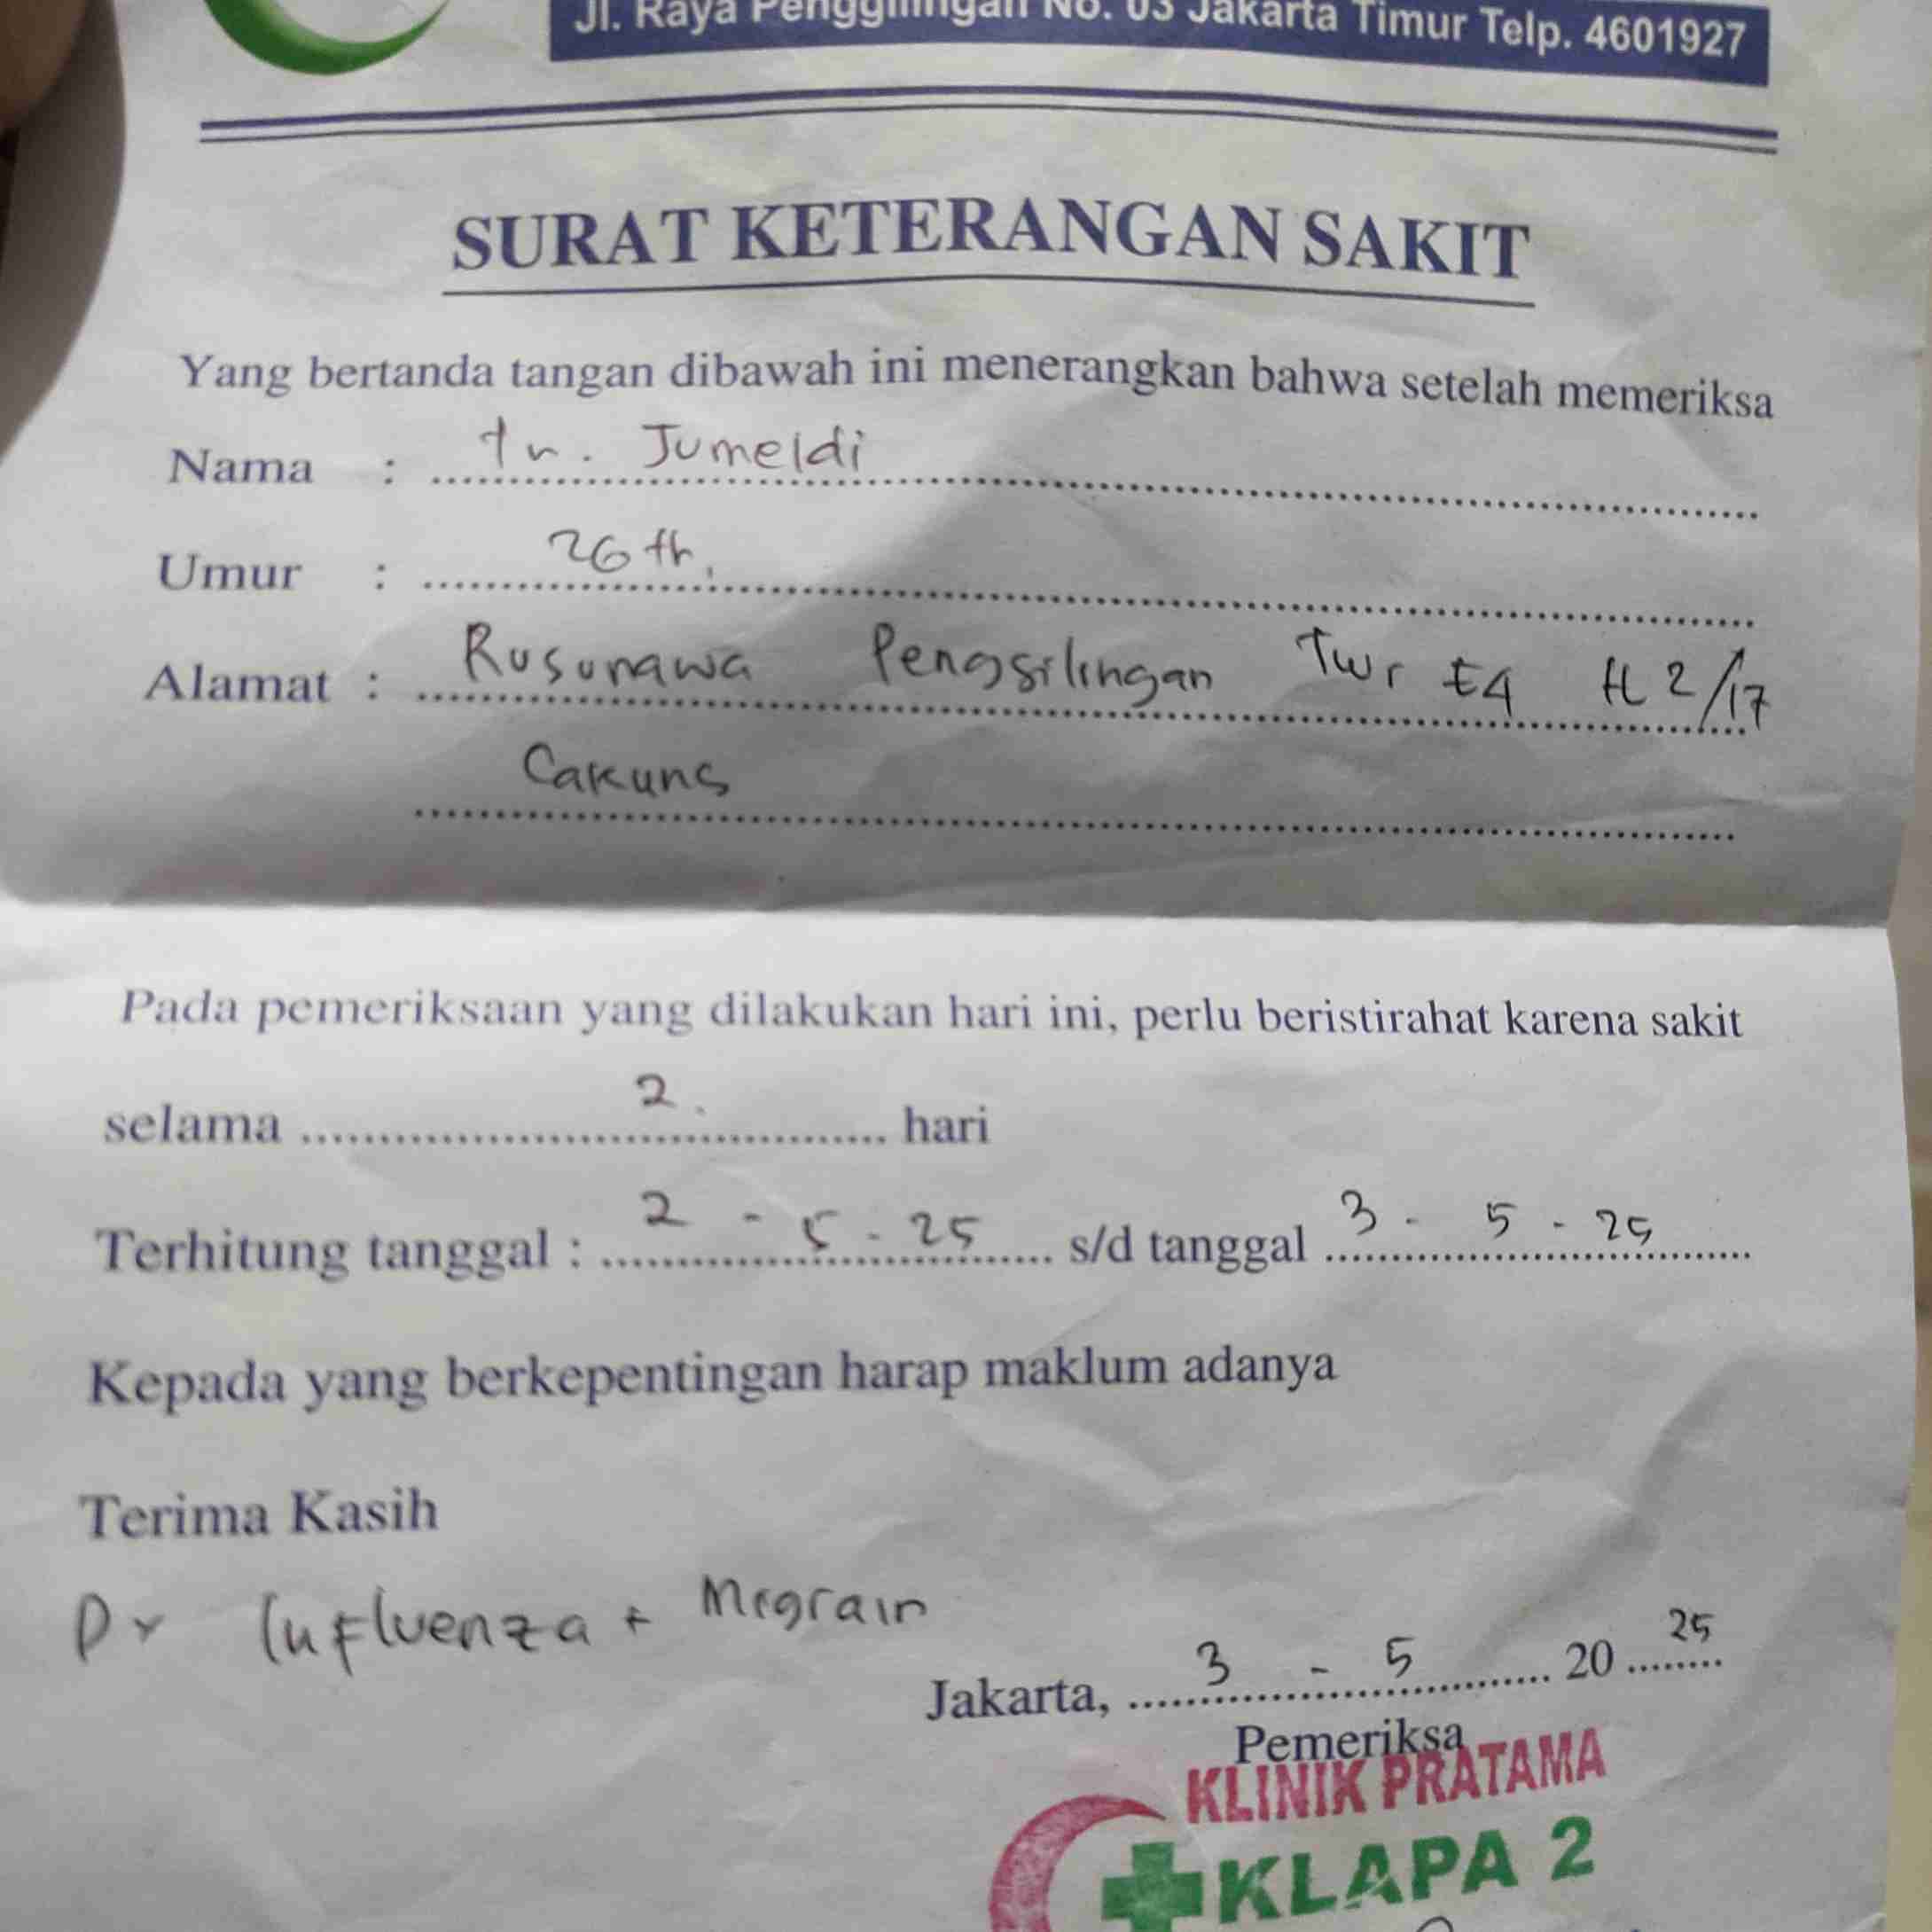 Jl. Raya Penggilingan No. 03 Jakarta Timur Telp. 4601927
SURAT KETERANGAN SAKIT
Yang bertanda tangan dibawah ini menerangkan bahwa setelah memeriksa
Nama : tn. Jumeldi
Umur : 26 th.
Alamat : Rusunawa Penggilingan Twr E4 lt 2/17
Cakung
Pada pemeriksaan yang dilakukan hari ini, perlu beristirahat karena sakit
selama 2. hari
Terhitung tanggal : 2 - 5 - 25 s/d tanggal 3 - 5 - 25
Kepada yang berkepentingan harap maklum adanya
Terima Kasih
Dx Influenza + Migrain
Jakarta, 3 - 5 20 25
Pemeriksa
KLINIK PRATAMA
KLAPA 2